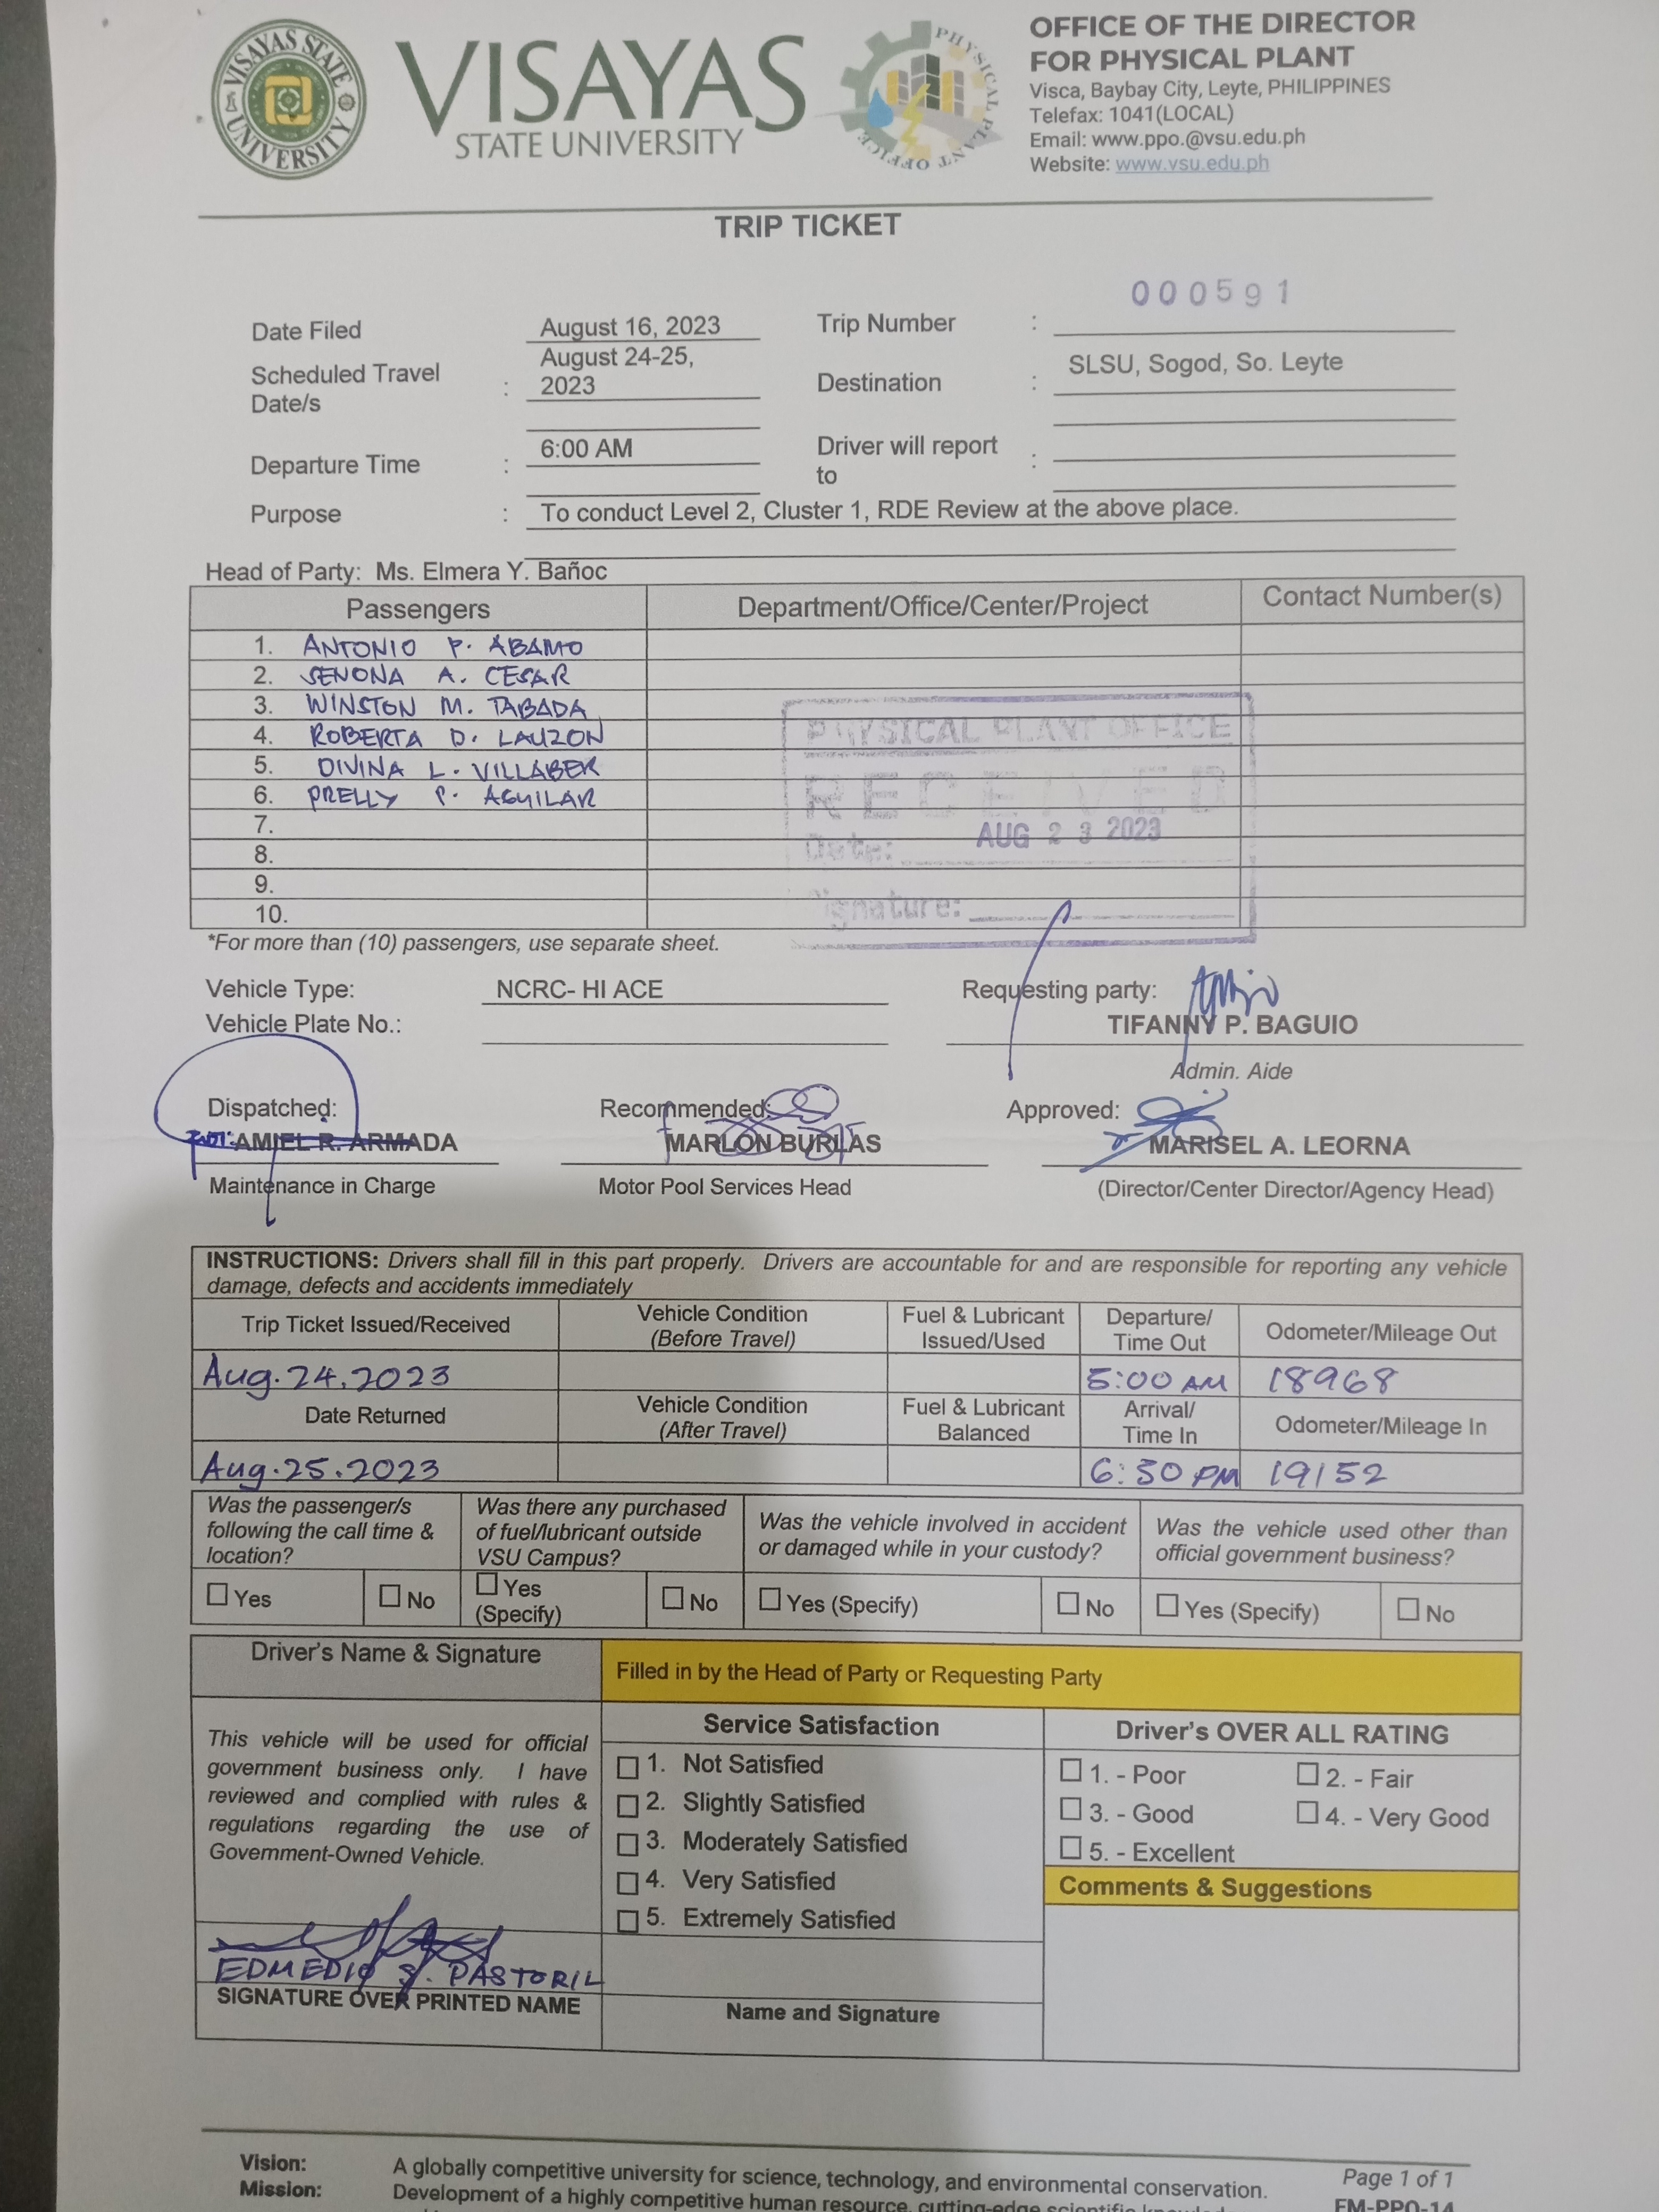 VISAYAS STATE UNIVERSITY
VISAYAS
STATE UNIVERSITY
PHYSICAL PLANT OFFICE
OFFICE OF THE DIRECTOR
FOR PHYSICAL PLANT
Visca, Baybay City, Leyte, PHILIPPINES
Telefax: 1041(LOCAL)
Email: www.ppo.@vsu.edu.ph
Website: www.vsu.edu.ph
TRIP TICKET
000591
Date Filed August 16, 2023 Trip Number :
Scheduled Travel Date/s : August 24-25, 2023 Destination : SLSU, Sogod, So. Leyte
Departure Time : 6:00 AM Driver will report to :
Purpose : To conduct Level 2, Cluster 1, RDE Review at the above place.
Head of Party: Ms. Elmera Y. Bañoc
Passengers Department/Office/Center/Project Contact Number(s)
1. ANTONIO P. ABAMO
2. SENONA A. CESAR
3. WINSTON M. TABADA
4. ROBERTA D. LAUZON
5. DIVINA L. VILLABER
6. PRELLY P. AGUILAR
7.
8.
9.
10.
PHYSICAL PLANT OFFICE
RECEIVED
Date: AUG 23 2023
Signature:
*For more than (10) passengers, use separate sheet.
Vehicle Type: NCRC- HI ACE Requesting party:
Vehicle Plate No.: TIFANNY P. BAGUIO
Admin. Aide
Dispatched: Recommended: Approved:
AMIEL R. ARMADA MARLON BURLAS MARISEL A. LEORNA
Maintenance in Charge Motor Pool Services Head (Director/Center Director/Agency Head)
INSTRUCTIONS: Drivers shall fill in this part properly. Drivers are accountable for and are responsible for reporting any vehicle
damage, defects and accidents immediately
Trip Ticket Issued/Received Vehicle Condition (Before Travel) Fuel & Lubricant Issued/Used Departure/ Time Out Odometer/Mileage Out
Aug. 24. 2023 5:00 AM 18968
Date Returned Vehicle Condition (After Travel) Fuel & Lubricant Balanced Arrival/ Time In Odometer/Mileage In
Aug. 25. 2023 6:30 PM 19152
Was the passenger/s following the call time & location? Was there any purchased of fuel/lubricant outside VSU Campus? Was the vehicle involved in accident or damaged while in your custody? Was the vehicle used other than official government business?
☐ Yes ☐ No ☐ Yes (Specify) ☐ No ☐ Yes (Specify) ☐ No ☐ Yes (Specify) ☐ No
Driver's Name & Signature Filled in by the Head of Party or Requesting Party
This vehicle will be used for official
government business only. I have
reviewed and complied with rules &
regulations regarding the use of
Government-Owned Vehicle.
EDMEDIO S. PASTORIL
SIGNATURE OVER PRINTED NAME
Service Satisfaction
☐ 1. Not Satisfied
☐ 2. Slightly Satisfied
☐ 3. Moderately Satisfied
☐ 4. Very Satisfied
☐ 5. Extremely Satisfied
Name and Signature
Driver's OVER ALL RATING
☐ 1. - Poor ☐ 2. - Fair
☐ 3. - Good ☐ 4. - Very Good
☐ 5. - Excellent
Comments & Suggestions
Vision: A globally competitive university for science, technology, and environmental conservation.
Mission: Development of a highly competitive human resource, cutting-edge scientific
Page 1 of 1
FM-PPO-14